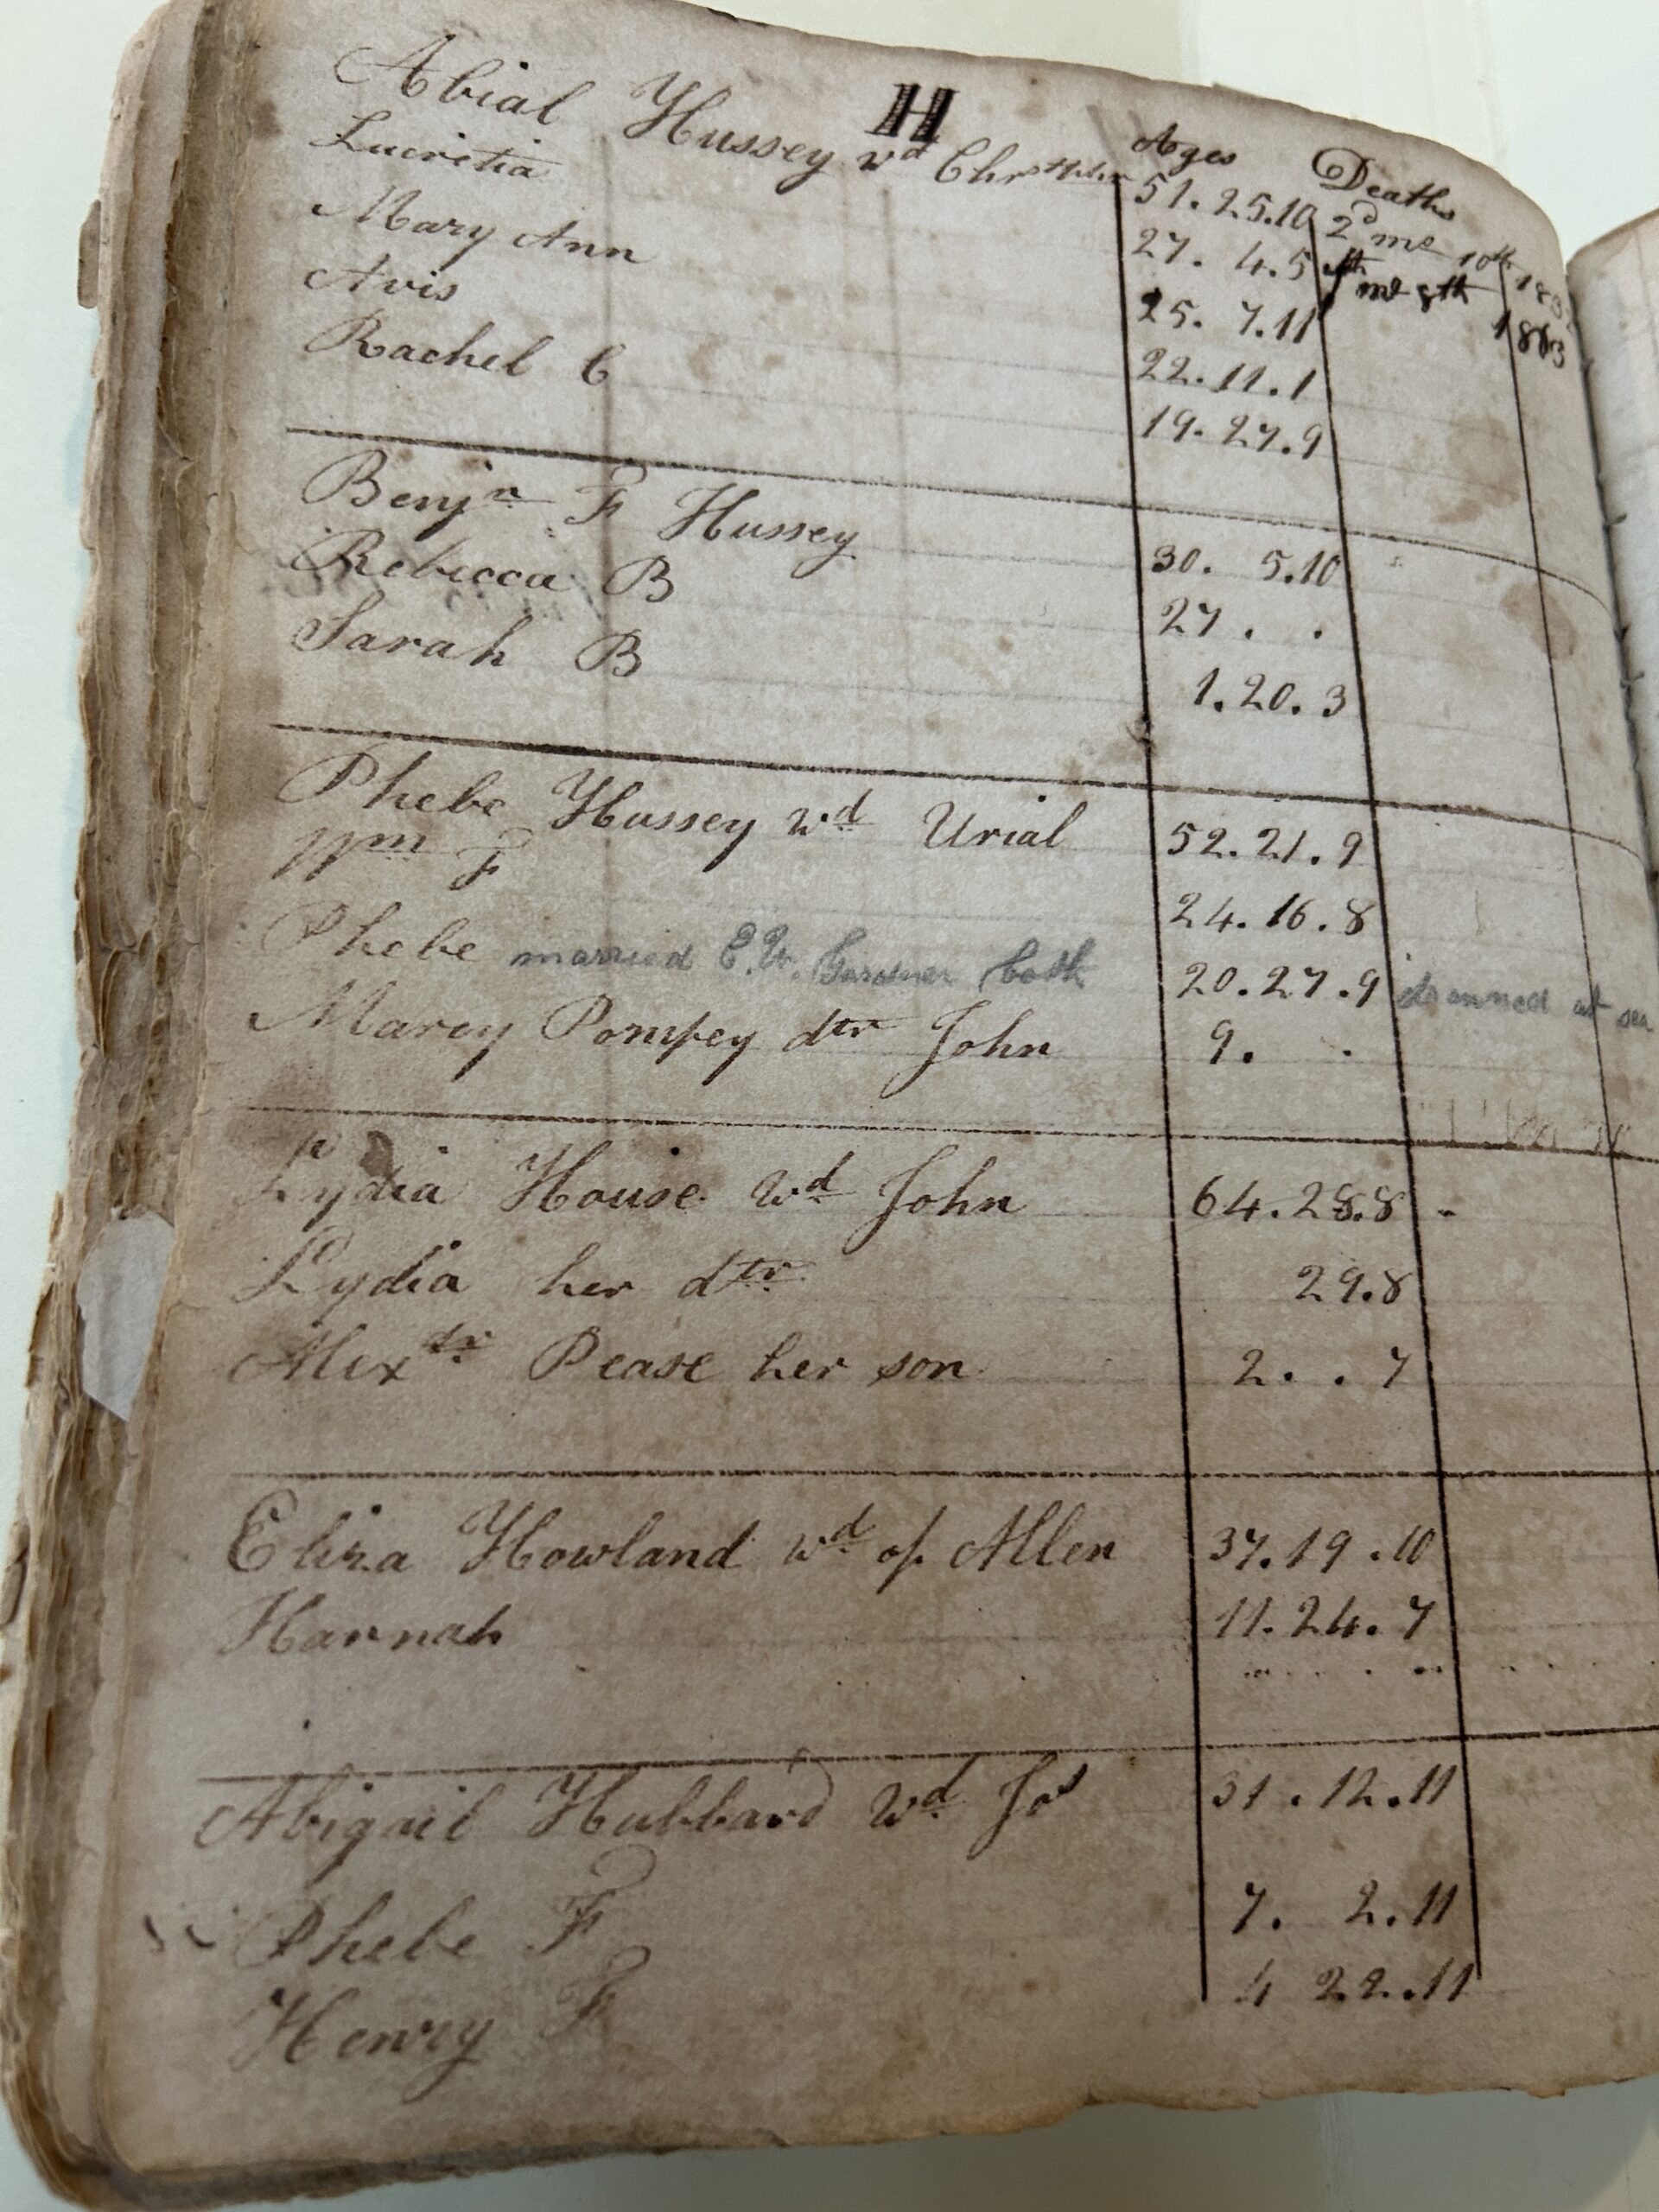 H
Ages Deaths
Abial Hussey wd 51. 25.10 2d mo 10th
Lucretia 27. 4.5 mo 8th 1863
Mary Ann 25. 7.11
Avis 22. 11. 1
Rachel C 19. 27. 9
Benjn F Hussey 30. 5.10
Rebecca B 27 . .
Sarah B 1. 20. 3
Phebe Hussey wd Urial 52. 21. 9
Wm F 24. 16. 8
Phebe married E.W. Gardner both 20. 27. 9 drowned at sea
Marcy Pompey dtr John 9. .
Lydia House wd John 64. 28.8 -
Lydia her dtr 29.8
Alexdr Pease her son 2. . 7
Eliza Howland wd of Allen 37. 19 .10
Hannah 11. 24. 7
Abigail Hubbard wd Jos 31 . 12. 11
Phebe F 7. 2. 11
Henry F 4 22. 11